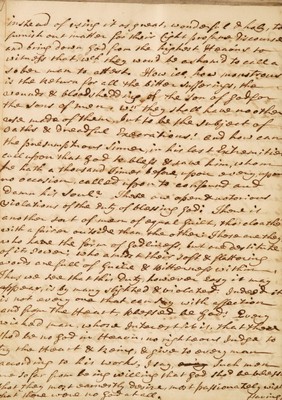 instead of using it as great, wonderful & holy, to
furnish out matter for their light profane discourse
and bring down God from the highest Heavens to
witness that wch they would be asham'd to call a
sober man to attest. How ill, how monstrous
is the return for all the bitter sufferings, the
wounds & bloodshedding of the Son of God for
the sons of men wn they shall have no other
use made of them, but to be the subject of
oaths & dreadful Execrations! And how can
the presumptuous Sinner, in his last distress
call upon that God to bless & save him, whom
he hath a thousand times before, upon every
occasion, called upon to confound and
damn his Soul? These are open & notorious
violations of the duty of blessing God: There is
another sort of men guilty of this, tho cloathed
with a fairer outside than the other: Those are they
who have the form of Godliness, but are destitute
of its power: who amidst their soft & flattering
words are full of Guile & Bitterness within.
Thus we see that this duty, as easy as it may
appear, is by many slighted & violated. Indeed it
is not every one that can say with affection
and from the Heart, blessed be God. Every
wicked man, whose Interest it is, that there
should be no God in Heaven, no righteous Judge to
try the Heart & Reins, & give to every man
according to his works, I say Such men
are so far from being willing that God shd be blessed
that they most earnestly desire, most passionately wish
that there were no God at all.